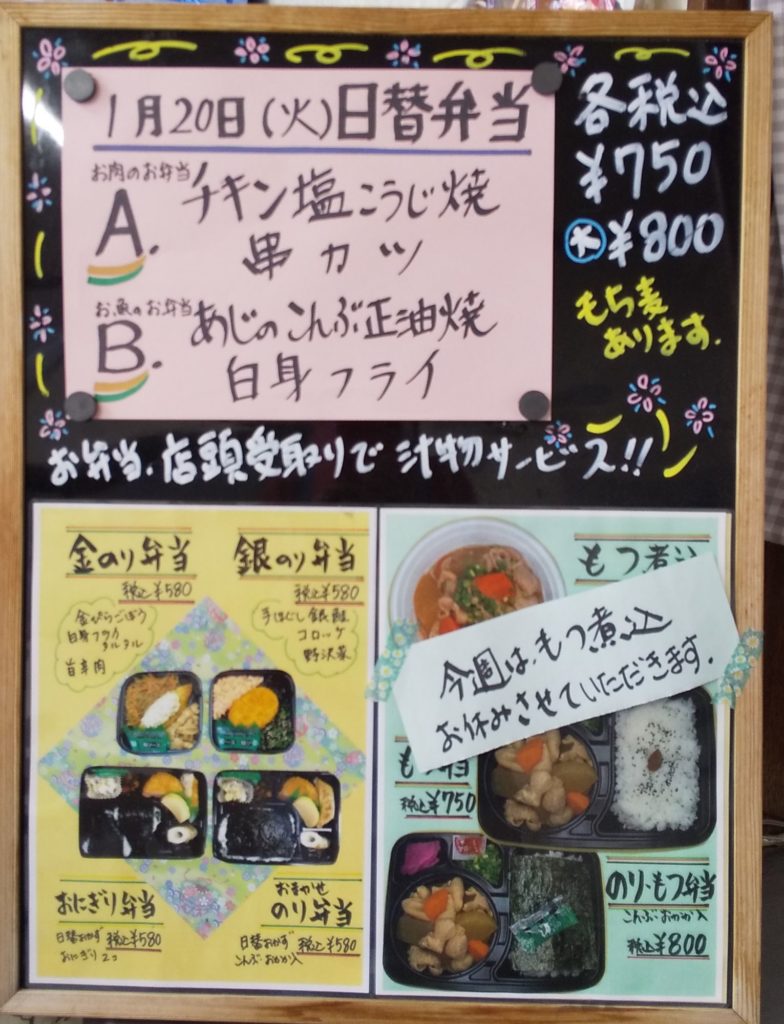 1月20日(火)日替弁当
お肉のお弁当
A.
チキン塩こうじ焼
串カツ
お魚のお弁当
B.
あじのこんぶ正油焼
白身フライ
各税込
¥750
大¥800
もち麦
あります.
お弁当、店頭受取りで 汁物サービス!!
金のり弁当
税込¥580
金ぴらごぼう
白身フライ
タルタル
旨辛肉
銀のり弁当
税込¥580
手ほぐし銀鮭
コロッケ
野沢菜
おにぎり弁当
日替おかず 税込¥580
おにぎり2コ
おまかせ
のり弁当
日替おかず 税込¥580
こんぶおかか入
もつ煮込
今週は、もつ煮込
お休みさせていただきます.
税込¥750
のり・もつ弁当
こんぶおかか入
税込¥800